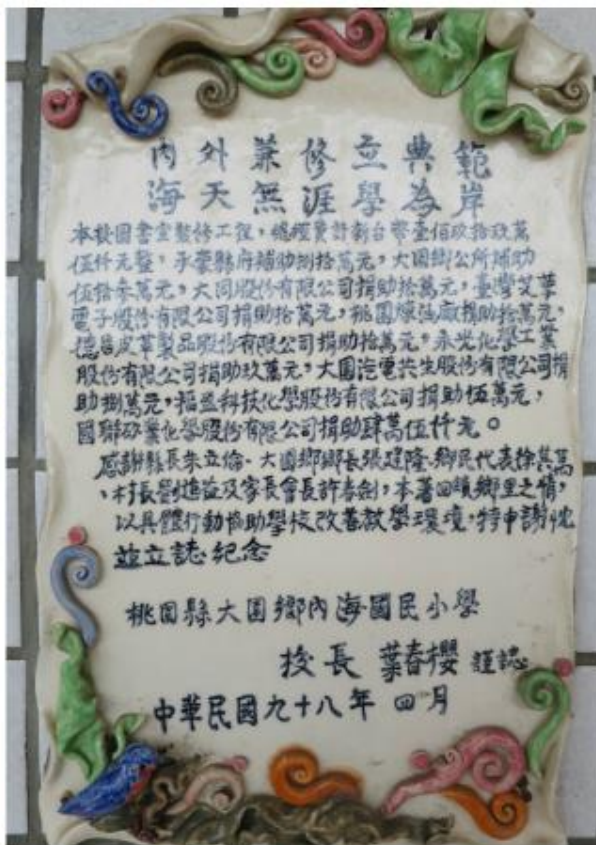 內外兼修立典範
海天無涯學為岸
本校圖書室整修工程，總經費計新台幣壹佰玖拾玖萬
伍仟元整，承蒙縣府補助捌拾萬元，大園鄉公所補助
伍拾參萬元，大同股份有限公司捐助拾萬元，臺灣艾華
電子股份有限公司捐助拾萬元，桃園煉油廠捐助拾萬元，
德昌皮革製品股份有限公司捐助拾萬元，永光化學工業
股份有限公司捐助玖萬元，大園汽電共生股份有限公司捐
助捌萬元，福盈科技化學股份有限公司捐助伍萬元，
國聯矽業化學股份有限公司捐助肆萬伍仟元。
感謝縣長朱立倫、大園鄉鄉長張建隆、鄉民代表徐其萬
、村長劉進益及家長會長許春劍，本著回饋鄉里之情，
以具體行動協助學校改善教學環境，特申謝忱
並立誌紀念
桃園縣大園鄉內海國民小學
校長 葉春櫻 謹誌
中華民國九十八年 四月